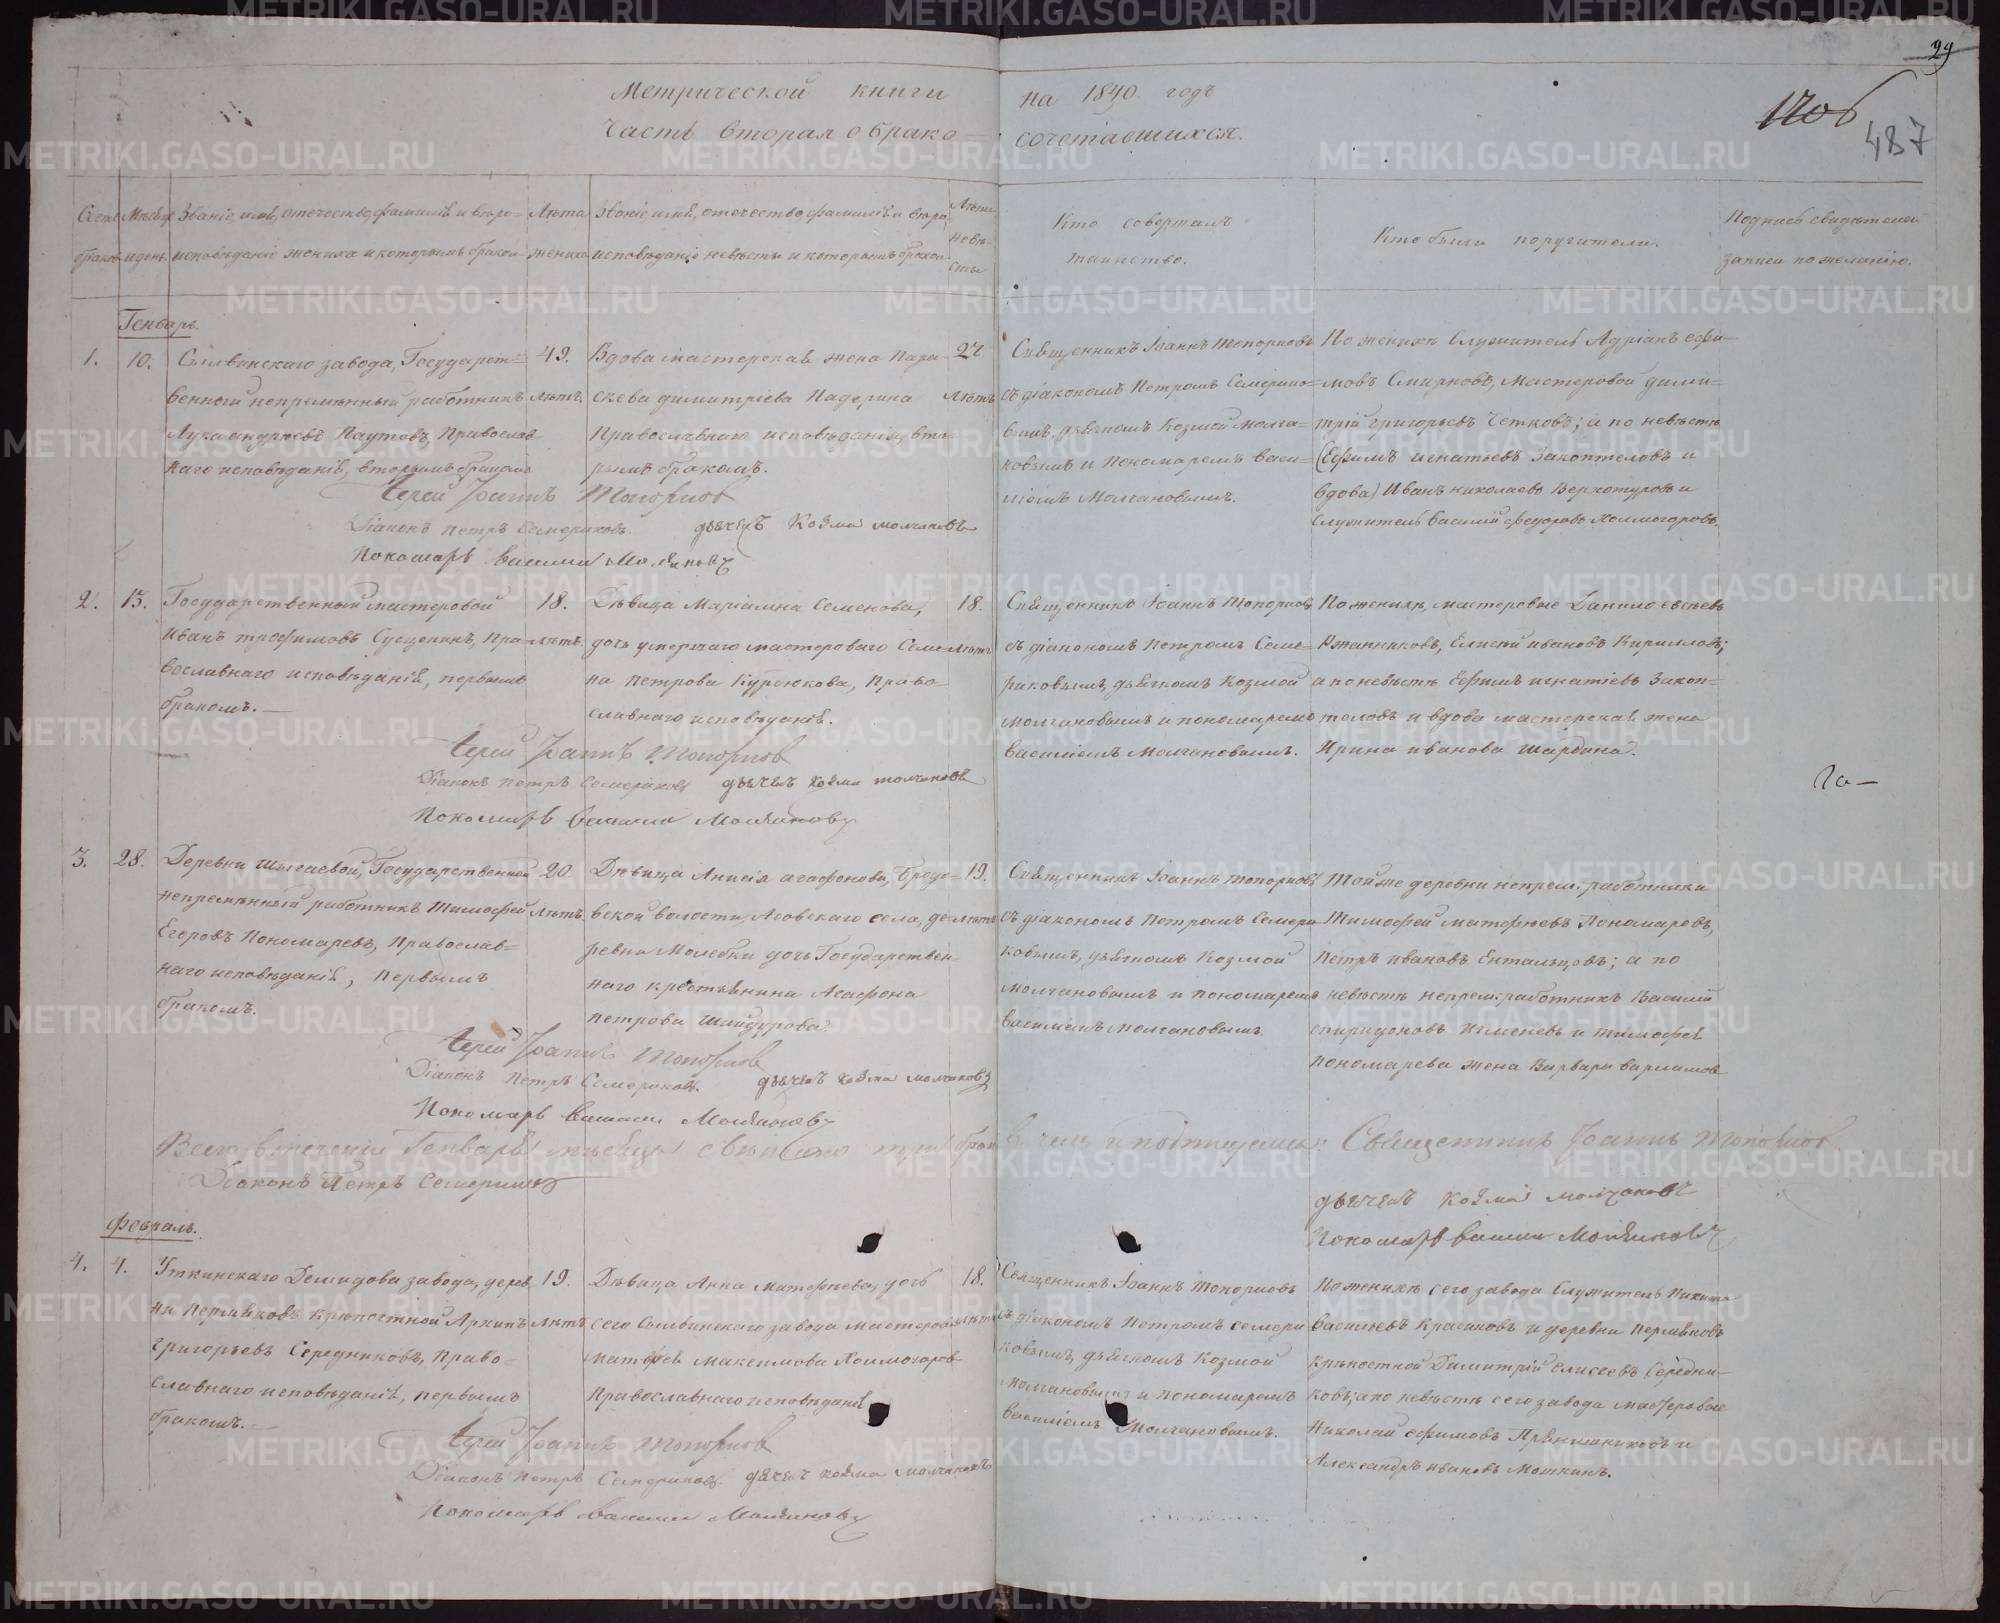 29
1706
487
Метрической книги на 1840 годъ
Часть вторая о брако=сочетавшихся.
Счетъ браковъ
Мѣсяцъ и день
Званіе, имя, отечество, фамилія и вѣро-
исповѣданіе жениха и которымъ бракомъ
Лѣта
жениха
Званіе, имя, отечество, фамилія и вѣро-
исповѣданіе невѣсты и которымъ бракомъ
Лѣта
невѣ-
сты
Кто совершалъ
таинство.
Кто были поручители.
Подпись свидѣтелей
записи по желанію.
Генварь.
1.
10.
Сылвинскаго завода, Государст=
венный непремѣнный работникъ
Лука Андреевъ Паутовъ, Православ-
наго исповѣданія, вторымъ бракомъ
49.
лѣтъ.
Вдова мастерская жена Пара-
скева Димитріева Падерина
Православнаго исповѣданія, вто-
рымъ бракомъ.
27.
лѣтъ
Священникъ Іоаннъ Топорковъ
съ діакономъ Петромъ Семерико=
вымъ, дьячкомъ Козмой Молча-
новымъ и пономаремъ Васи-
ліемъ Молчановымъ.
По женихѣ Служитель Адріанъ Ефи-
мовъ Смирновъ, Мастеровой Дими-
трій Григорьевъ Четковъ; а по невѣстѣ
(Ефимъ Игнатьевъ Закоптеловъ и
вдова) Иванъ Николаевъ Верхотуровъ и
служитель Василій Ѳедоровъ Холмогоровъ.
Іерей Іоаннъ Топорковъ
Діаконъ Петръ Семериковъ. дьячекъ Козма Молчановъ
Пономарь Василій Молчановъ
2.
15.
Государственный мастеровой
Иванъ Трофимовъ Сущенинъ, Пра-
вославнаго исповѣданія, первымъ
бракомъ.
18.
лѣтъ
Дѣвица Маріамна Семенова,
дочь умершаго мастероваго Семе-
на Петрова Курбюкова, Право-
славнаго исповѣданія.
18.
лѣтъ
Священникъ Іоаннъ Топорковъ
съ діакономъ Петромъ Семе-
риковымъ, дьячкомъ Козмой
Молчановымъ и пономаремъ
Василіемъ Молчановымъ.
По женихѣ, мастеровые Данило Евсѣевъ
Ржанниковъ, Елисѣй Ивановъ Кирилловъ;
а по невѣстѣ Ефимъ Игнатіевъ Закоп=
теловъ и вдова мастерская жена
Ирина Иванова Шардина.
Іерей Іоаннъ Топорковъ
Діаконъ Петръ Семериковъ дьячекъ Козма Молчановъ
Пономарь Василій Молчановъ
3.
28.
Деревни Шигаевой, Государственной
непремѣнный работникъ Тимофей
Егоровъ Пономаревъ, Православ=
наго исповѣданія, первымъ
бракомъ.
20.
лѣтъ
Дѣвица Анисія Агафонова, Бродо-
вской волости, Асовскаго села, де-
ревни Молебки дочь Государствен-
наго крестьянина Агафона
Петрова Шайдурова
19.
лѣтъ
Священникъ Іоаннъ Топорковъ
съ діакономъ Петромъ Семери
ковымъ, дьячкомъ Козмой
Молчановымъ и пономаремъ
Василіемъ Молчановымъ
Той же деревни непрем: работники
Тимофей Матфѣевъ Пономаревъ,
Петръ Ивановъ Ентальцовъ; а по
невѣстѣ непрем: работникъ Василій
Спиридоновъ Игменевъ и Тимофѣя
Пономарева жена Варвара Варламова
Іерей Іоаннъ Топорковъ
Діаконъ Петръ Семериковъ. дьячекъ Козма Молчановъ
Пономарь Василій Молчановъ
Всего въ теченіи Генваря мѣсяца три брака Священникъ Іоаннъ Топорковъ
Діаконъ Петръ Семериковъ
дьячекъ Козма Молчановъ
Пономарь Василій Молчановъ
Февраль.
4.
4.
Уткинскаго Демидова завода, дерев-
ни Пермяковъ крѣпостной Архипъ
Григорьевъ Середниковъ, Право-
славнаго исповѣданія, первымъ
бракомъ.
19.
лѣтъ
Дѣвица Анна Матфѣева, дочь
сего Сылвинскаго завода мастероваго
Матфея Максимова Холмогоров
Православнаго исповѣданія
18.
лѣтъ
Священникъ Іоаннъ Топорковъ
съ діакономъ Петромъ Семери
ковымъ, дьячкомъ Козмой
Молчановымъ и пономаремъ
Василіемъ Молчановымъ.
По женихѣ сего завода Служитель Никита
Васильевъ Красиковъ и деревни Пермяковъ
крѣпостной Димитрій Елисеевъ Середни-
ковъ; а по невѣстѣ сего завода мастеровые
Николай Ефимовъ Прянишниковъ и
Александръ Ивановъ Моткинъ.
Іерей Іоаннъ Топорковъ
Діаконъ Петръ Семериковъ. дьячекъ Козма Молчановъ
Пономарь Василій Молчановъ
METRIKI.GASO-URAL.RU